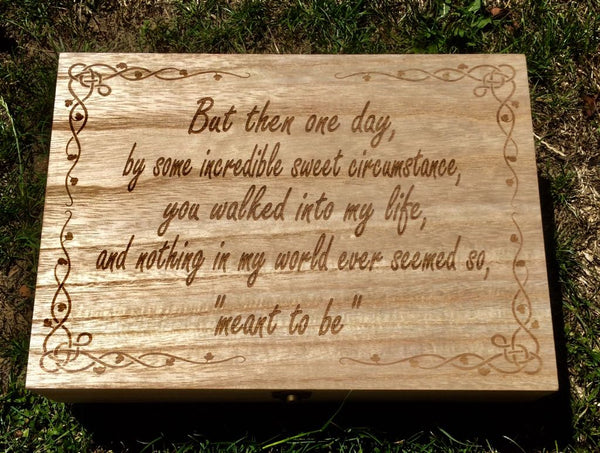 But then one day,
by some incredible sweet circumstance,
you walked into my life,
and nothing in my world ever seemed so,
"meant to be"